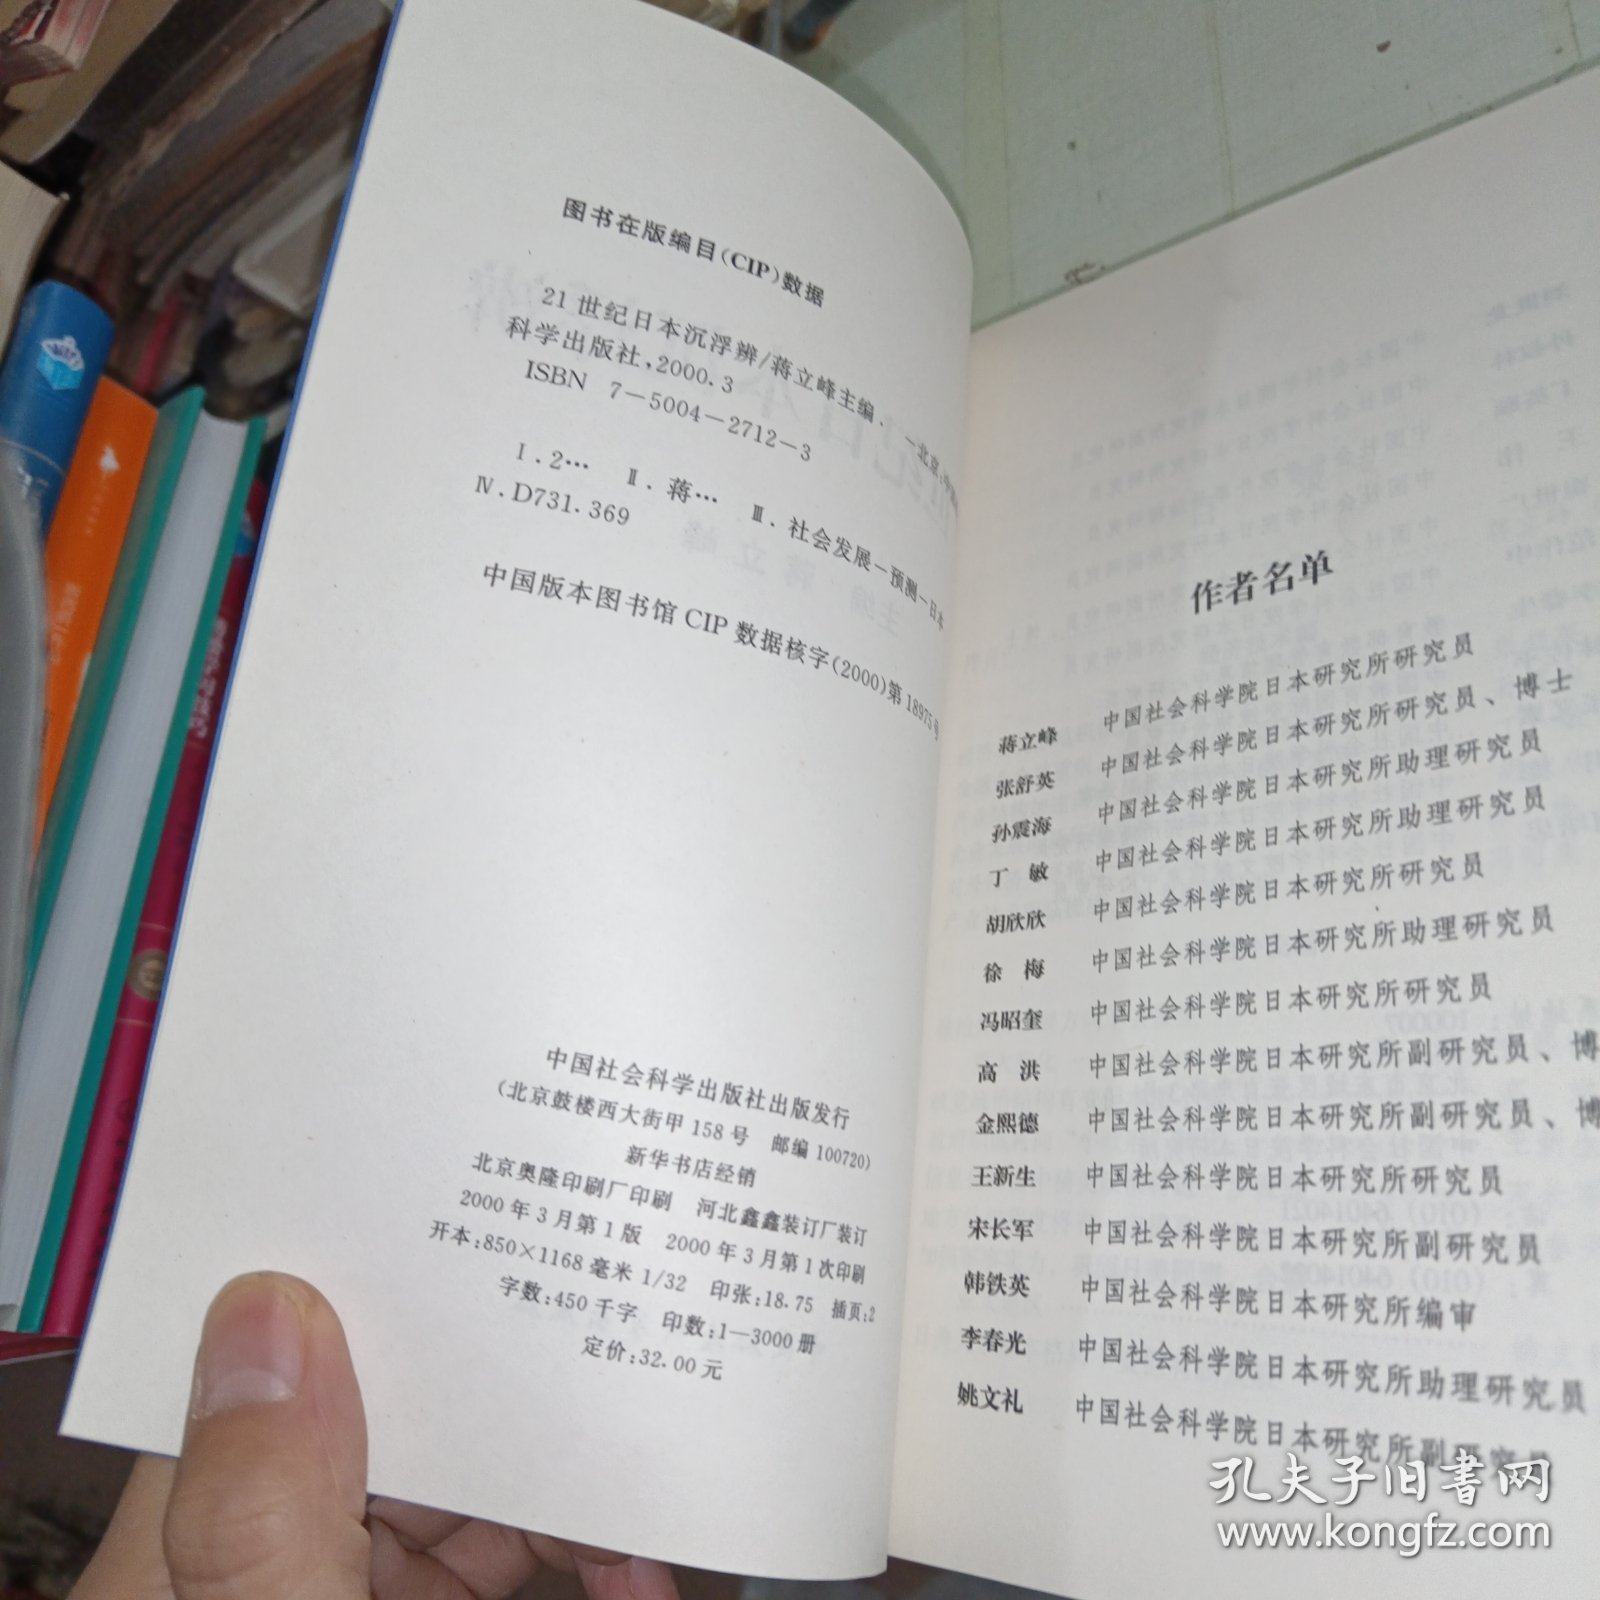 图书在版编目(CIP)数据
21世纪日本沉浮辨/蒋立峰主编. —北京:中国
科学出版社,2000.3
ISBN 7—5004—2712—3
Ⅰ.2… Ⅱ.蒋… Ⅲ.社会发展—预测—日本
Ⅳ.D731.369
中国版本图书馆CIP数据核字(2000)第18975号
中国社会科学出版社出版发行
(北京鼓楼西大街甲158号 邮编100720)
新华书店经销
北京奥隆印刷厂印刷 河北鑫鑫装订厂装订
2000年3月第1版 2000年3月第1次印刷
开本:850×1168毫米1/32 印张:18.75 插页:2
字数:450千字 印数:1—3000册
定价:32.00元
作者名单
蒋立峰 中国社会科学院日本研究所研究员
张舒英 中国社会科学院日本研究所研究员、博士
孙震海 中国社会科学院日本研究所助理研究员
丁 敏 中国社会科学院日本研究所助理研究员
胡欣欣 中国社会科学院日本研究所研究员
徐 梅 中国社会科学院日本研究所助理研究员
冯昭奎 中国社会科学院日本研究所研究员
高 洪 中国社会科学院日本研究所副研究员、博
金熙德 中国社会科学院日本研究所副研究员、博
王新生 中国社会科学院日本研究所研究员
宋长军 中国社会科学院日本研究所副研究员
韩铁英 中国社会科学院日本研究所编审
李春光 中国社会科学院日本研究所助理研究员
姚文礼 中国社会科学院日本研究所副研究员
孔夫子旧书网
www.kongfz.com